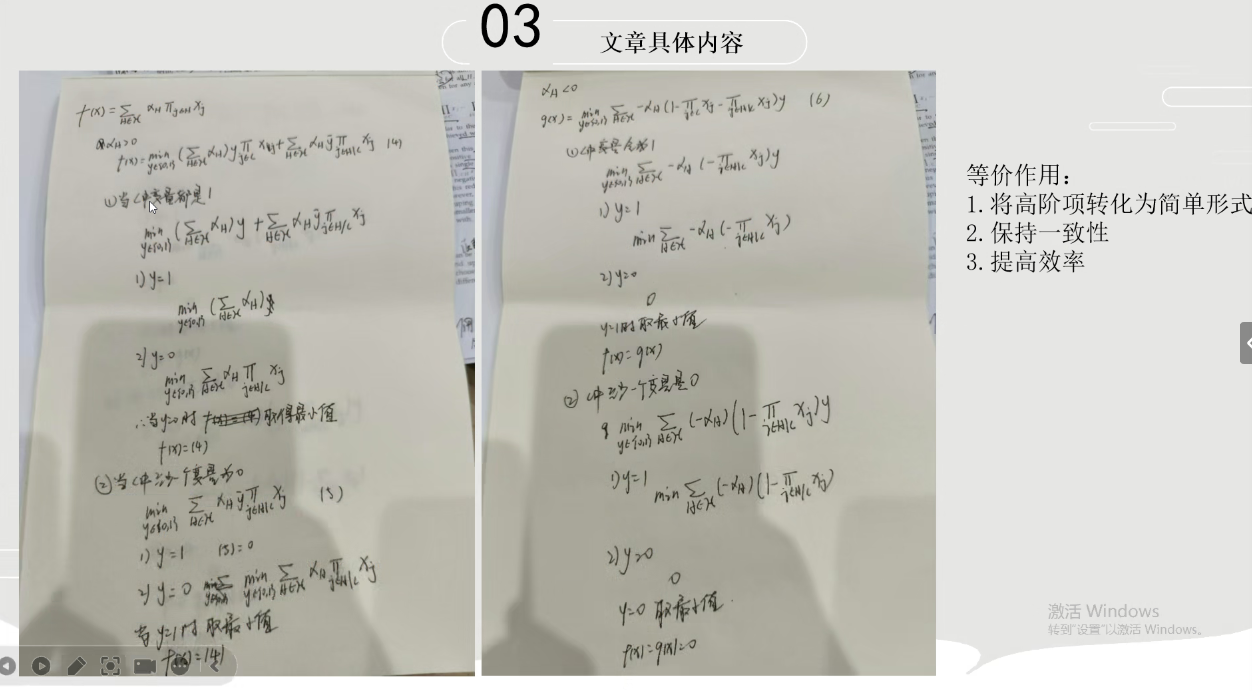 03
文章具体内容
f(x) = Σ_{H∈ℋ} α_H π_{j∈H} x_j
α_H>0
f(x) = min_{y∈{0,1}} (Σ_{H∈ℋ} α_H) y π_{j∈C} x_j + Σ_{H∈ℋ} α_H ȳ π_{j∈H\C} x_j (4)
①当C中变量都是1
min_{y∈{0,1}} (Σ_{H∈ℋ} α_H) y + Σ_{H∈ℋ} α_H ȳ π_{j∈H\C} x_j
1) y=1
min_{y∈{0,1}} (Σ_{H∈ℋ} α_H)
2) y=0
min_{y∈{0,1}} Σ_{H∈ℋ} α_H π_{j∈H\C} x_j
∴当y=0时 取得最小值
f(x)=(4)
②当C中至少一个变量为0
min_{y∈{0,1}} Σ_{H∈ℋ} α_H ȳ π_{j∈H\C} x_j (5)
1) y=1 (5)=0
2) y=0 min_{y∈{0,1}} Σ_{H∈ℋ} α_H π_{j∈H\C} x_j
当y=1时 取最小值
f(x)=(4)
α_H<0
g(x) = min_{y∈{0,1}} Σ_{H∈ℋ} -α_H (1-π_{j∈C} x_j - π_{j∈H\C} x_j) y (6)
①C中变量全为1
min_{y∈{0,1}} Σ_{H∈ℋ} -α_H (-π_{j∈H\C} x_j) y
1) y=1
min Σ_{H∈ℋ} -α_H (-π_{j∈H\C} x_j)
2) y=0
0
y=1时 取最小值
f(x)=g(x)
②C中至少一个变量是0
min_{y∈{0,1}} Σ_{H∈ℋ} (-α_H)(1-π_{j∈H\C} x_j) y
1) y=1
min Σ_{H∈ℋ} (-α_H)(1-π_{j∈H\C} x_j)
2) y=0
0
y=0 取最小值.
f(x)=g(x)=0
等价作用：
1.将高阶项转化为简单形式
2.保持一致性
3.提高效率
激活 Windows
转到"设置"以激活 Windows。